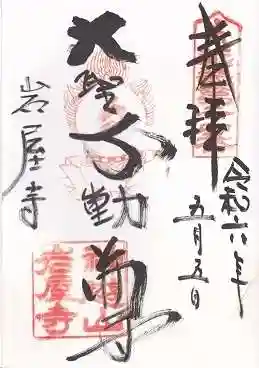 奉拝
令和六年
五月五日
大聖不動尊
岩屋寺
神勝山
岩屋寺